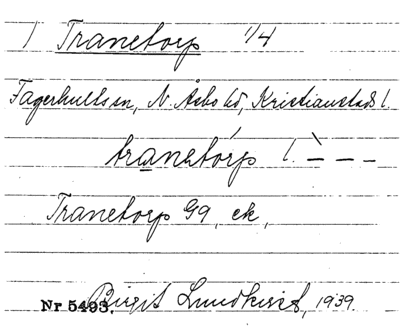 1 Tranetorp 1/4
Fagerhults sn, N. Åsbo hd, Kristianstads l.
tranetórp l. ̀ – – –
Tranetorp G9, ek,
Nr 5493. Birgit Lundkvist, 1939.